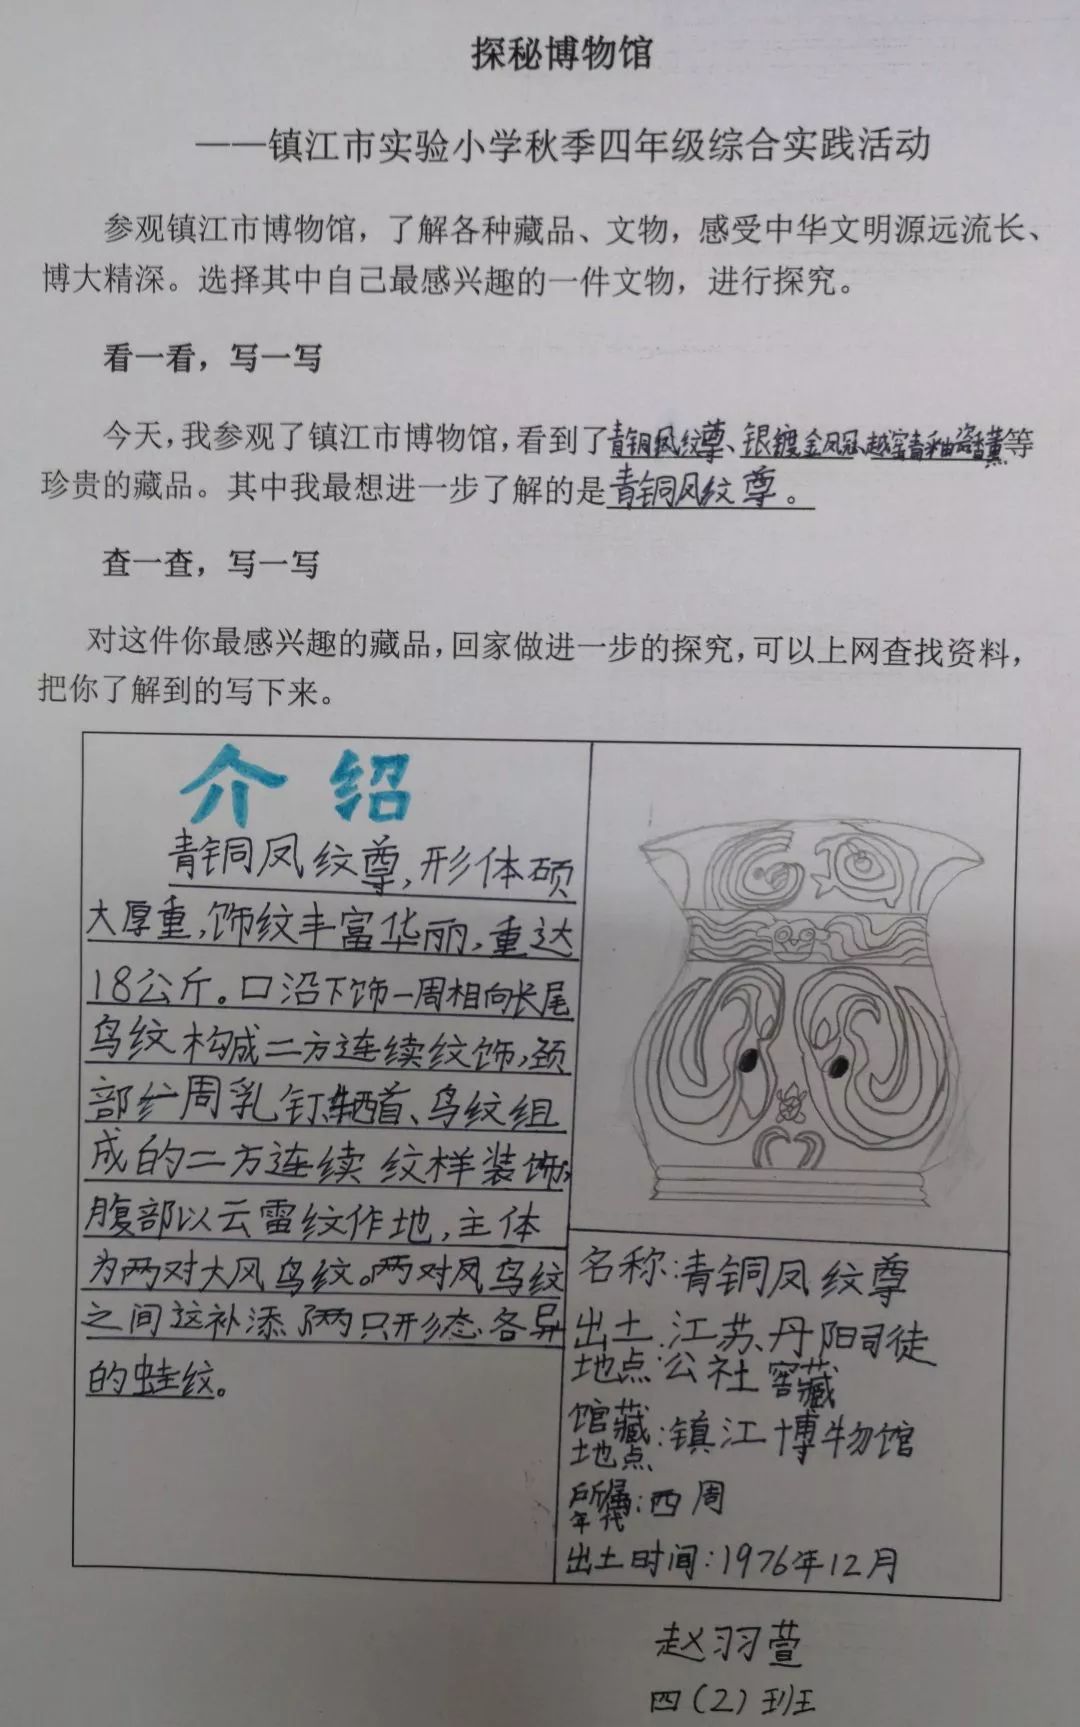 探秘博物馆
——镇江市实验小学秋季四年级综合实践活动
参观镇江市博物馆，了解各种藏品、文物，感受中华文明源远流长、
博大精深。选择其中自己最感兴趣的一件文物，进行探究。
看一看，写一写
今天，我参观了镇江市博物馆，看到了青铜凤纹尊、银镀金凤冠、越窑青釉瓷香薰等
珍贵的藏品。其中我最想进一步了解的是青铜凤纹尊。
查一查，写一写
对这件你最感兴趣的藏品，回家做进一步的探究，可以上网查找资料，
把你了解到的写下来。
介绍
青铜凤纹尊，形体硕
大厚重，饰纹丰富华丽，重达
18公斤。口沿下饰一周相向长尾
鸟纹构成二方连续纹饰，颈
部一周乳钉、牺首、鸟纹组
成的二方连续纹样装饰，
腹部以云雷纹作地，主体
为两对大凤鸟纹。两对凤鸟纹
之间这补添了两只形态各异
的蛙纹。
名称：青铜凤纹尊
出土地点：江苏、丹阳司徒
公社窖藏
馆藏地点：镇江博物馆
所属年代：西周
出土时间：1976年12月
赵羽萱
四（2）班